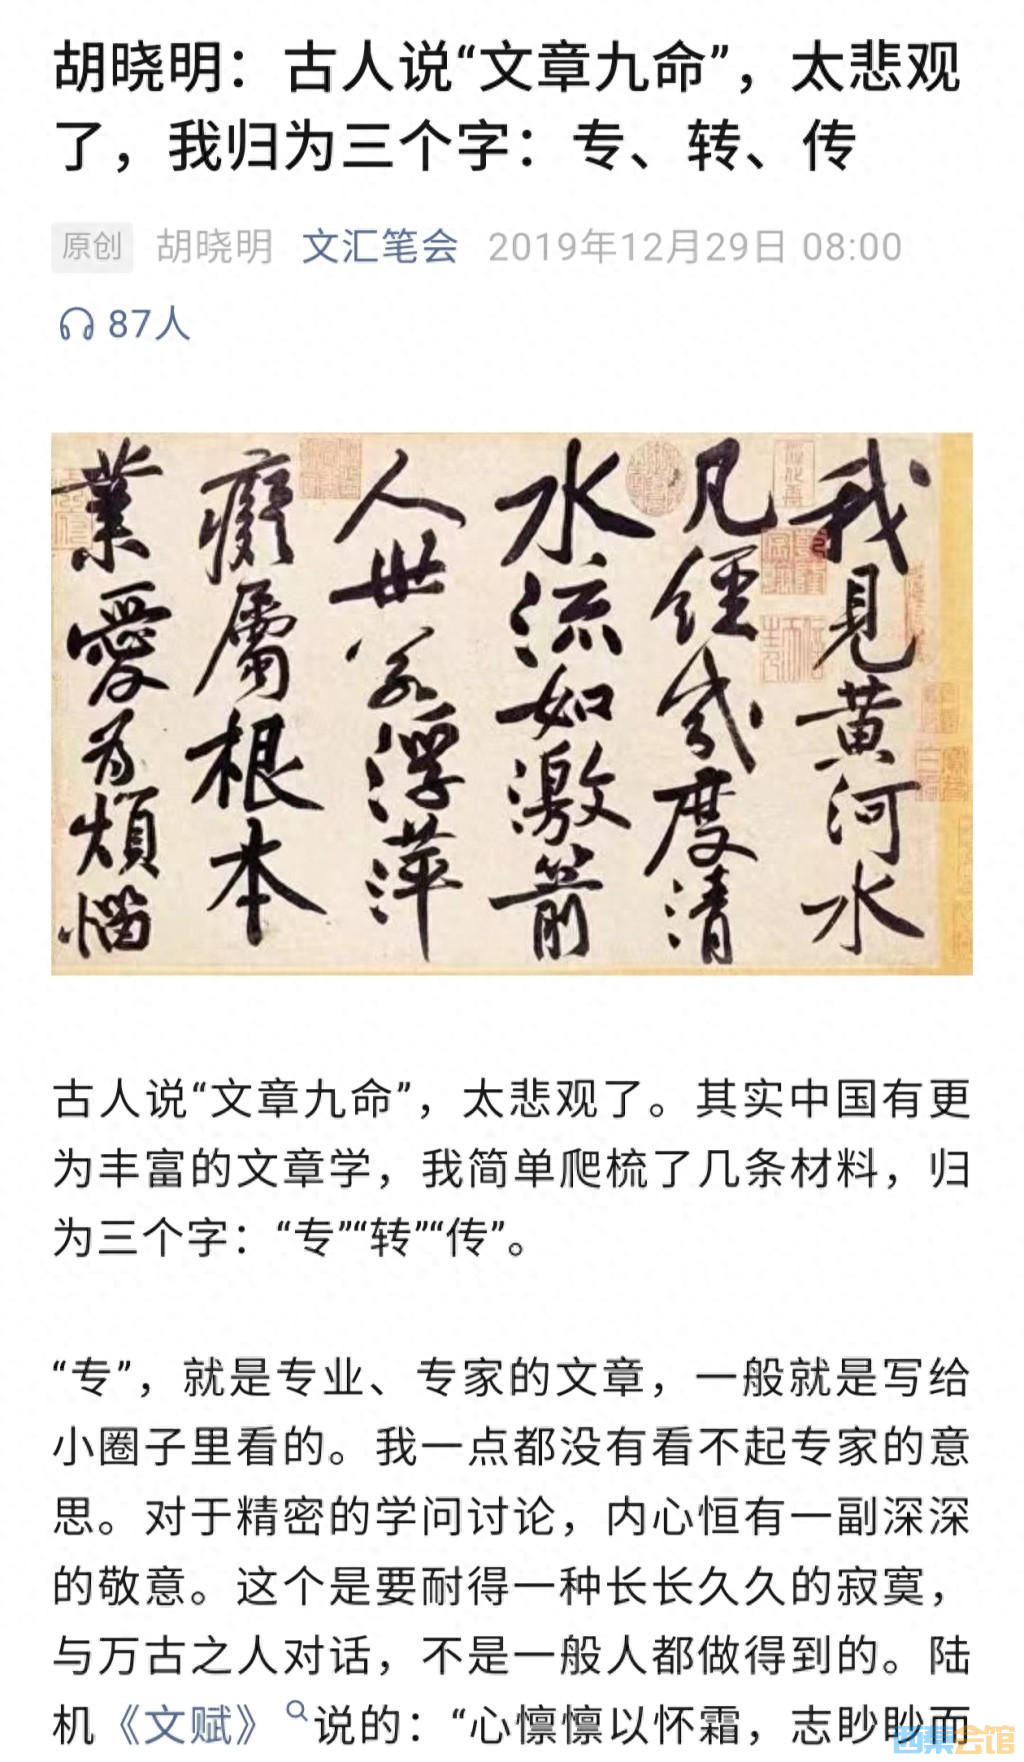 胡晓明：古人说“文章九命”，太悲观
了，我归为三个字：专、转、传
原创 胡晓明 文汇笔会 2019年12月29日 08:00
87人
我見黄河水
凡經幾度清
水流如激箭
人世若浮萍
癡屬根本
業愛為煩惱
古人说“文章九命”，太悲观了。其实中国有更
为丰富的文章学，我简单爬梳了几条材料，归
为三个字：“专”“转”“传”。
“专”，就是专业、专家的文章，一般就是写给
小圈子里看的。我一点都没有看不起专家的意
思。对于精密的学问讨论，内心恒有一副深深
的敬意。这个是要耐得一种长长久久的寂寞，
与万古之人对话，不是一般人都做得到的。陆
机《文赋》说的：“心懔懔以怀霜，志眇眇而
会馆